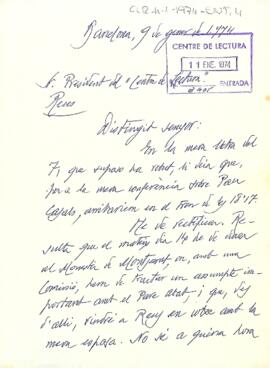 C.2.4.1-1974-ENT, 4
Barcelona, 9 de gener de 1.974
CENTRE DE LECTURA
11 ENE. 1974
ENTRADA
Sr. President del "Centre de Lectura"
Reus
Distingit senyor:
En la meva lletra del
7, que suposo ha rebut, li deia que,
per a la meva conferència sobre Pau
Casals, arribaríem en el tren de les 18'17.
He de rectificar. Re-
sulta que el matí del 19 he de
al Monestir de Montserrat on, amb una
Comissió, hem de tractar un assumpte im-
portant amb el Pare Abat; i que, des
d'allí, vindré a Reus en cotxe amb la
meva esposa. No sé a quina hora